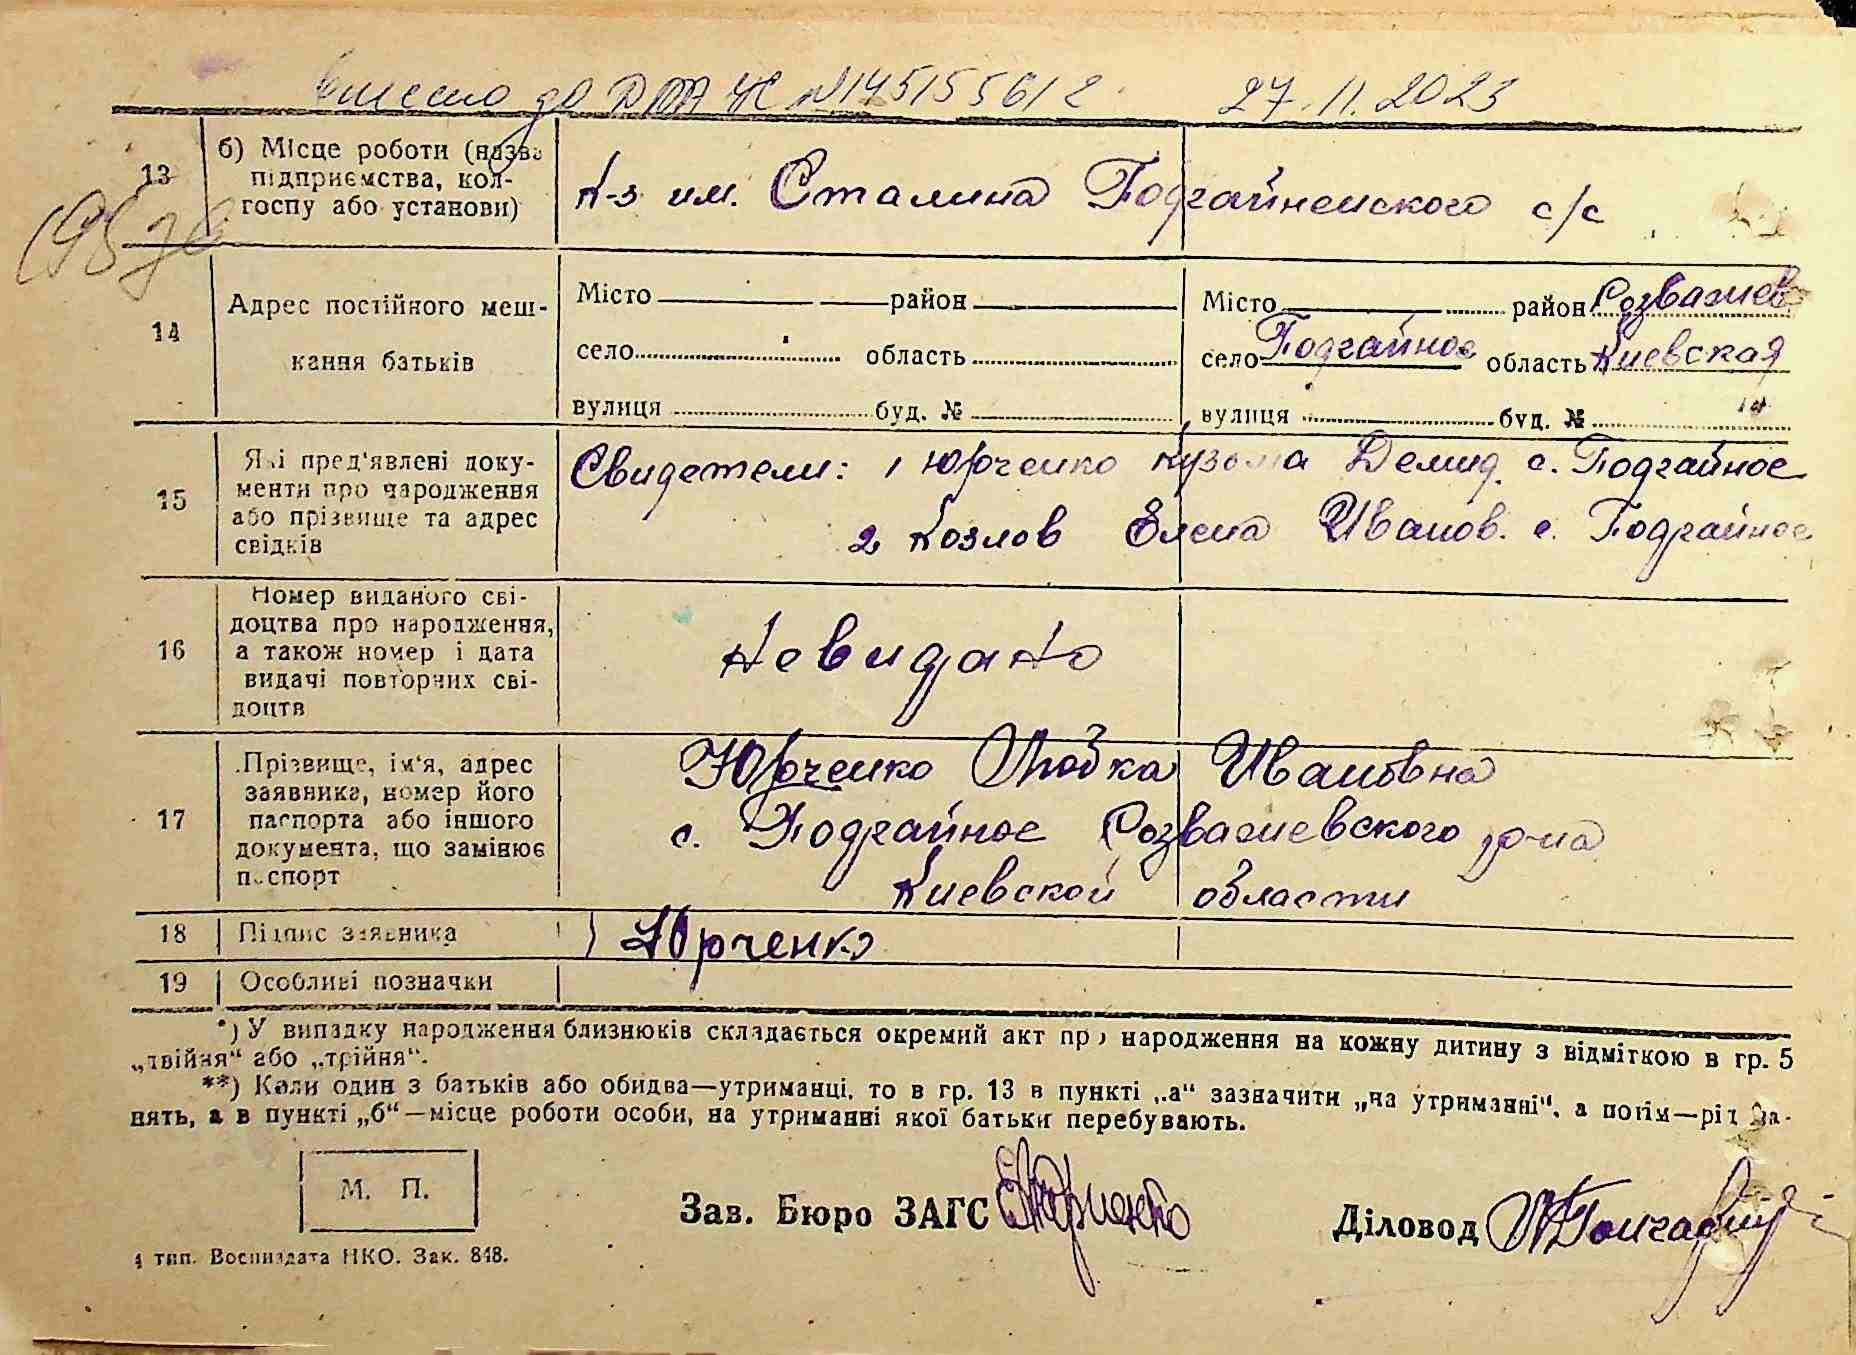 внесено до ДРАЦС №145155612 27.11.2023
13
б) Місце роботи (назва
підприємства, кол-
госпу або установи)
К-з им. Сталина Подгайненского с/с
14
Адрес постійного меш-
кання батьків
Місто район
село область
вулиця буд. №
Місто район Розважев
село Подгайное область Киевская
вулиця буд. №
15
Які пред'явлені доку-
менти про народження
або прізвище та адрес
свідків
Свидетели: 1 Юрченко Кузьма Демид. с. Подгайное
2 Козлов Елена Иванов. с. Подгайное
16
Номер виданого сві-
доцтва про народження,
а також номер і дата
видачі повторних сві-
доцтв
Невидано
17
Прізвище, ім'я, адрес
заявника, номер його
паспорта або іншого
документа, що замінює
паспорт
Юрченко Любка Ивановна
с. Подгайное Розважевского р-на
Киевской области
18 Підпис заявника Юрченко
19 Особливі позначки
*) У випадку народження близнюків складається окремий акт про народження на кожну дитину з відміткою в гр. 5
„двійня“ або „трійня“.
**) Коли один з батьків або обидва—утриманці, то в гр. 13 в пункті „а“ зазначити „на утриманні“, а потім—рід за-
нять, а в пункті „б“—місце роботи особи, на утриманні якої батьки перебувають.
М. П.
Зав. Бюро ЗАГС
Діловод
1 тип. Воениздата НКО. Зак. 848.